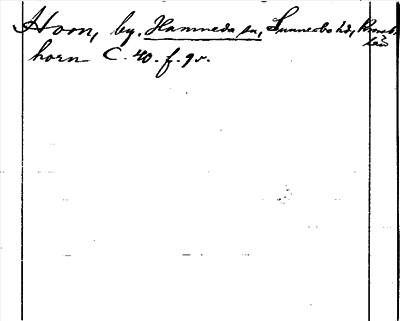 Horn, by. Hamneda sn, Sunnerbo hd, Kronob.
län
horn C. 40. f. 9v.